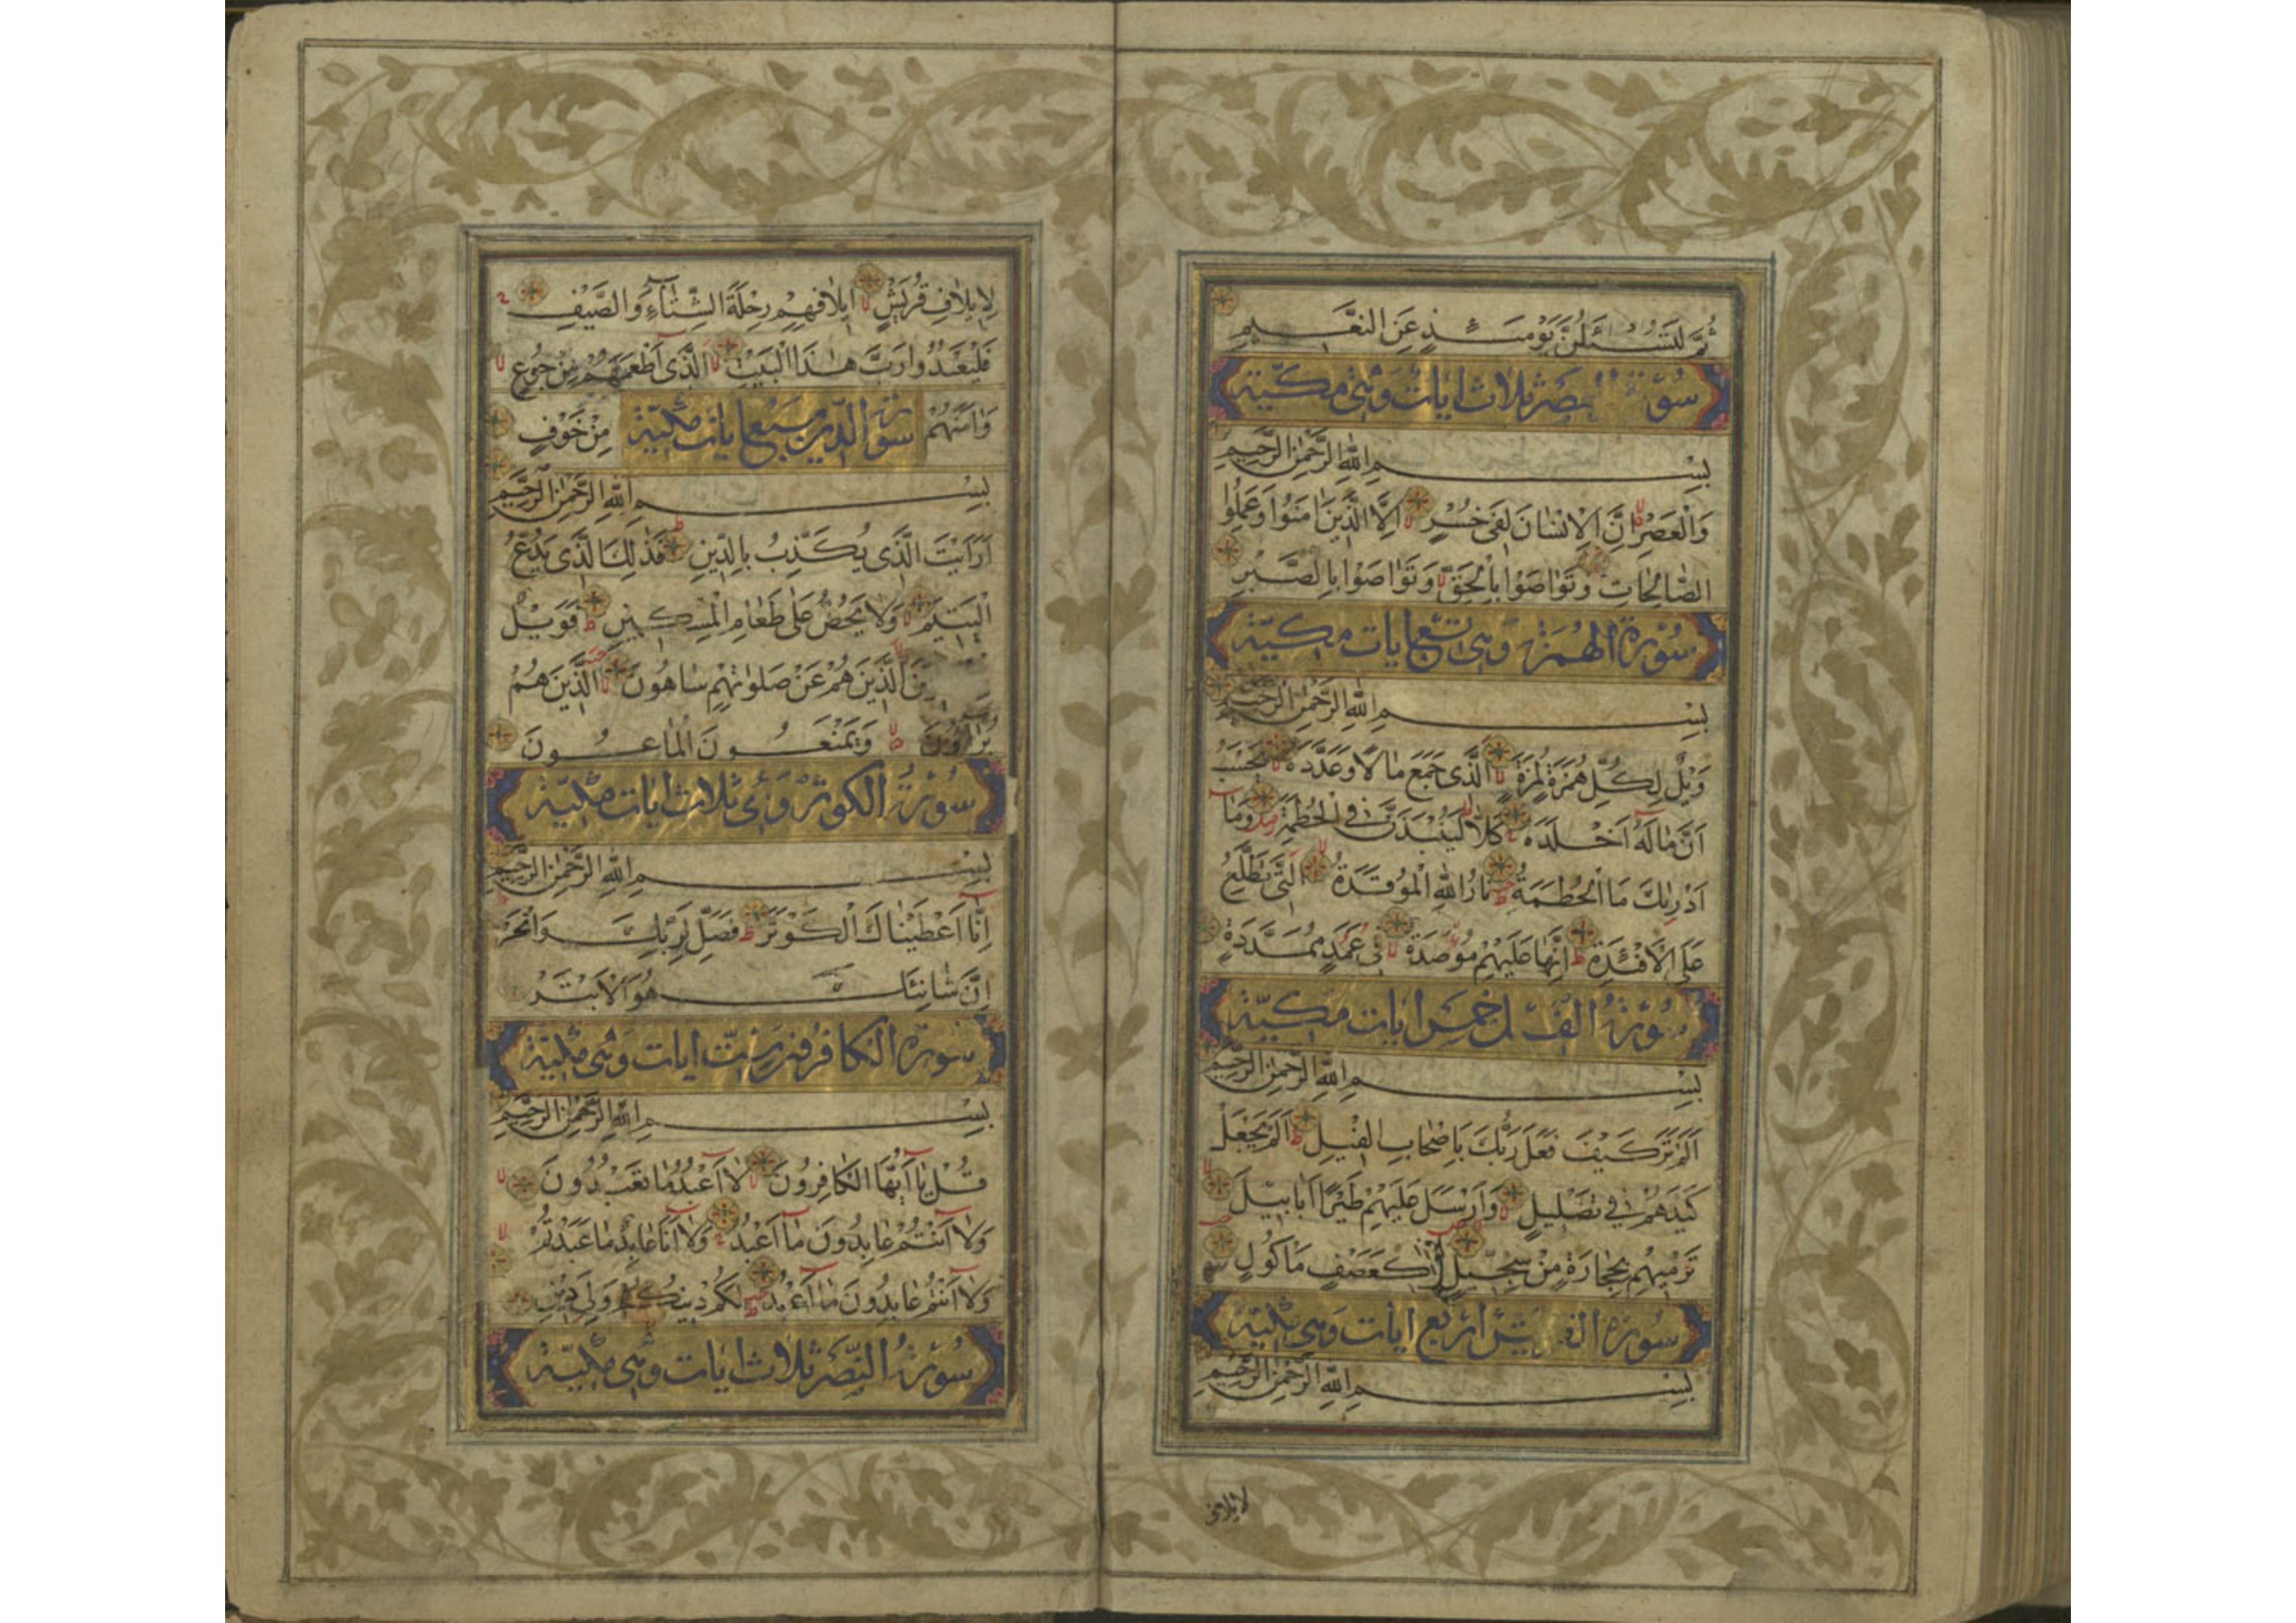 ثُمَّ لَتُسْئَلُنَّ يَوْمَئِذٍ عَنِ النَّعِيمِ
العصر ثلاث ايات وهى مكية
بِسْمِ اللهِ الرَّحْمٰنِ الرَّحِيمِ
وَالْعَصْرِ اِنَّ الْاِنْسَانَ لَفِى خُسْرٍ اِلَّا الَّذِينَ اٰمَنُوا وَعَمِلُوا
الصَّالِحَاتِ وَتَوَاصَوْا بِالْحَقِّ وَتَوَاصَوْا بِالصَّبْرِ
سورة الهمزة وهى تسع ايات مكية
بِسْمِ اللهِ الرَّحْمٰنِ الرَّحِيمِ
وَيْلٌ لِكُلِّ هُمَزَةٍ لُمَزَةٍ الَّذِى جَمَعَ مَالًا وَعَدَّدَهُ يَحْسَبُ
اَنَّ مَالَهُ اَخْلَدَهُ كَلَّا لَيُنْبَذَنَّ فِى الْحُطَمَةِ وَمَا
اَدْرٰيكَ مَا الْحُطَمَةُ نَارُ اللهِ الْمُوقَدَةُ الَّتِى تَطَّلِعُ
عَلَى الْاَفْئِدَةِ اِنَّهَا عَلَيْهِمْ مُؤْصَدَةٌ فِى عَمَدٍ مُمَدَّدَةٍ
سورة الفيل خمس ايات مكية
بِسْمِ اللهِ الرَّحْمٰنِ الرَّحِيمِ
اَلَمْ تَرَ كَيْفَ فَعَلَ رَبُّكَ بِاَصْحَابِ الْفِيلِ اَلَمْ يَجْعَلْ
كَيْدَهُمْ فِى تَضْلِيلٍ وَاَرْسَلَ عَلَيْهِمْ طَيْرًا اَبَابِيلَ
تَرْمِيهِمْ بِحِجَارَةٍ مِنْ سِجِّيلٍ كَعَصْفٍ مَاْكُولٍ
سورة القريش اربع ايات وهى مكية
بِسْمِ اللهِ الرَّحْمٰنِ الرَّحِيمِ
لايلاف
لِاِيلَافِ قُرَيْشٍ اِيلَافِهِمْ رِحْلَةَ الشِّتَاءِ وَالصَّيْفِ
فَلْيَعْبُدُوا رَبَّ هٰذَا الْبَيْتِ الَّذِى اَطْعَمَهُمْ مِنْ جُوعٍ
وَاٰمَنَهُمْ مِنْ خَوْفٍ
سورة الدين سبع ايات مكية
بِسْمِ اللهِ الرَّحْمٰنِ الرَّحِيمِ
اَرَاَيْتَ الَّذِى يُكَذِّبُ بِالدِّينِ فَذٰلِكَ الَّذِى يَدُعُّ
الْيَتِيمَ وَلَا يَحُضُّ عَلٰى طَعَامِ الْمِسْكِينِ فَوَيْلٌ
الَّذِينَ هُمْ عَنْ صَلَوٰتِهِمْ سَاهُونَ الَّذِينَ هُمْ
يُرَاؤُنَ وَيَمْنَعُونَ الْمَاعُونَ
سورة الكوثر وهى ثلاث ايات مكية
بِسْمِ اللهِ الرَّحْمٰنِ الرَّحِيمِ
اِنَّا اَعْطَيْنَاكَ الْكَوْثَرَ فَصَلِّ لِرَبِّكَ وَانْحَرْ
اِنَّ شَانِئَكَ هُوَ الْاَبْتَرُ
سورة الكافرون ست ايات وهى مكية
بِسْمِ اللهِ الرَّحْمٰنِ الرَّحِيمِ
قُلْ يَا اَيُّهَا الْكَافِرُونَ لَا اَعْبُدُ مَا تَعْبُدُونَ
وَلَا اَنْتُمْ عَابِدُونَ مَا اَعْبُدُ وَلَا اَنَا عَابِدٌ مَا عَبَدْتُمْ
وَلَا اَنْتُمْ عَابِدُونَ مَا اَعْبُدُ لَكُمْ دِينُكُمْ وَلِىَ دِينِ
سورة النصر ثلاث ايات وهى مكية